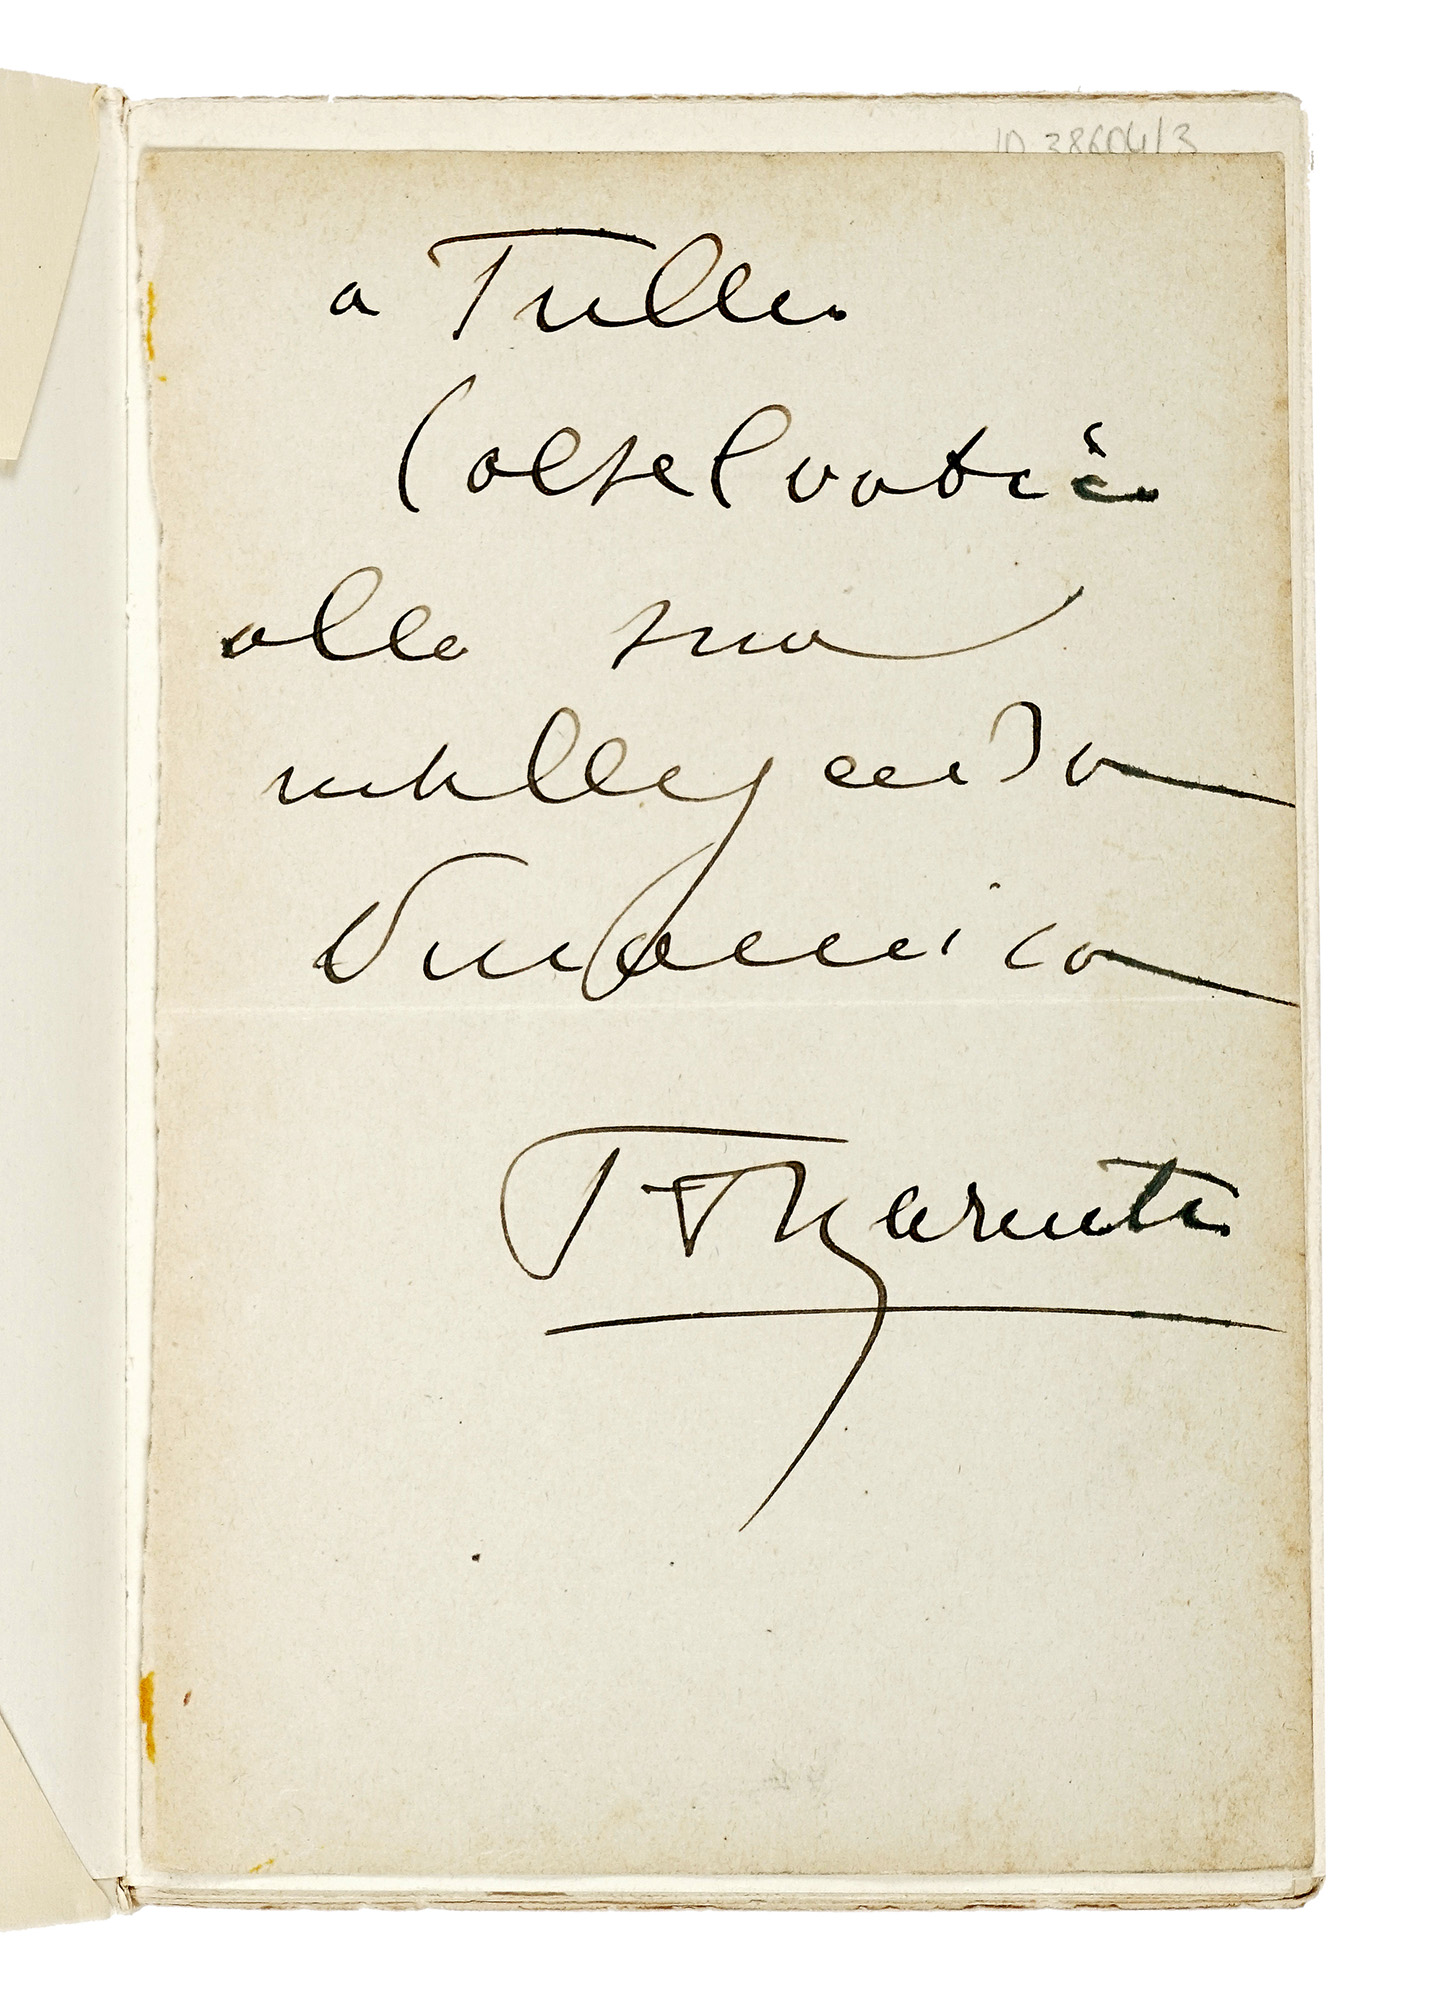 ID 38604/3
a Tullio
Calselvatico
alla sua
intelligenza
Dinamica
FTMarinetti